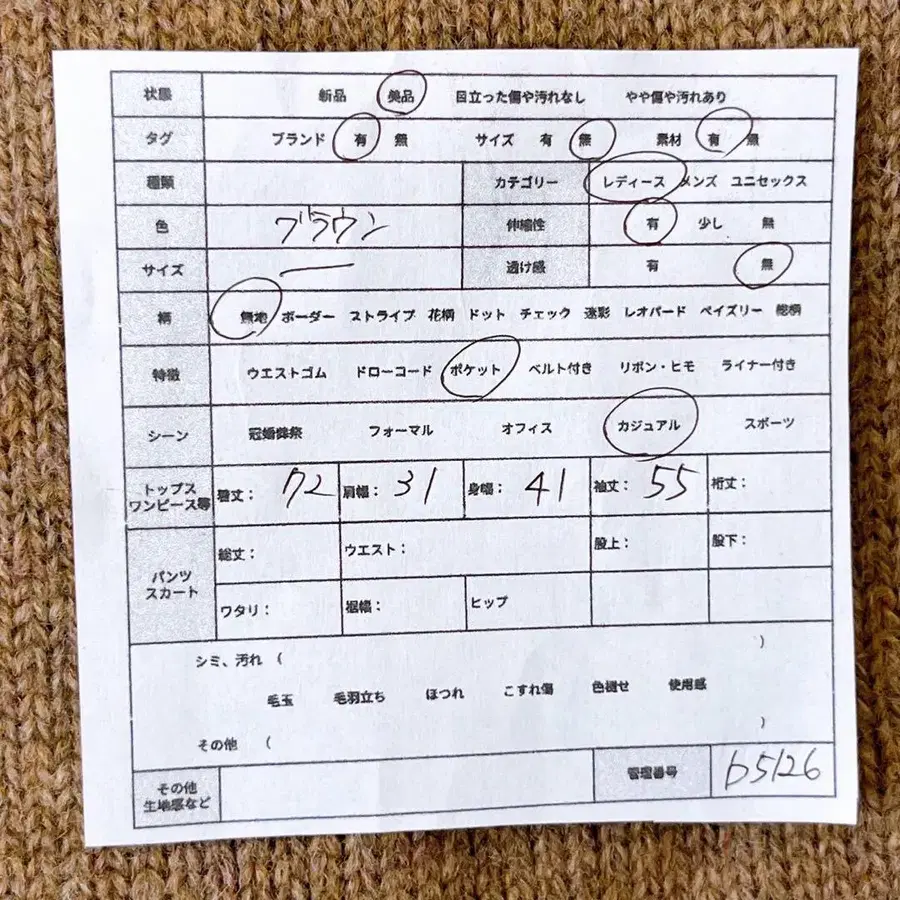 状態 新品 美品 目立った傷や汚れなし やや傷や汚れあり
タグ ブランド 有 無 サイズ 有 無 素材 有 無
種類 カテゴリー レディース メンズ ユニセックス
色 ブラウン 伸縮性 有 少し 無
サイズ ー 透け感 有 無
柄 無地 ボーダー ストライプ 花柄 ドット チェック 迷彩 レオパード ペイズリー 総柄
特徴 ウエストゴム ドローコード ポケット ベルト付き リボン・ヒモ ライナー付き
シーン 冠婚葬祭 フォーマル オフィス カジュアル スポーツ
トップス
ワンピース等 着丈： 72 肩幅： 31 身幅： 41 袖丈： 55 裄丈：
パンツ
スカート 総丈： ウエスト： 股上： 股下：
ワタリ： 裾幅： ヒップ
シミ、汚れ ( )
毛玉 毛羽立ち ほつれ こすれ傷 色褪せ 使用感
その他 ( )
その他
生地感など 管理番号 b5126